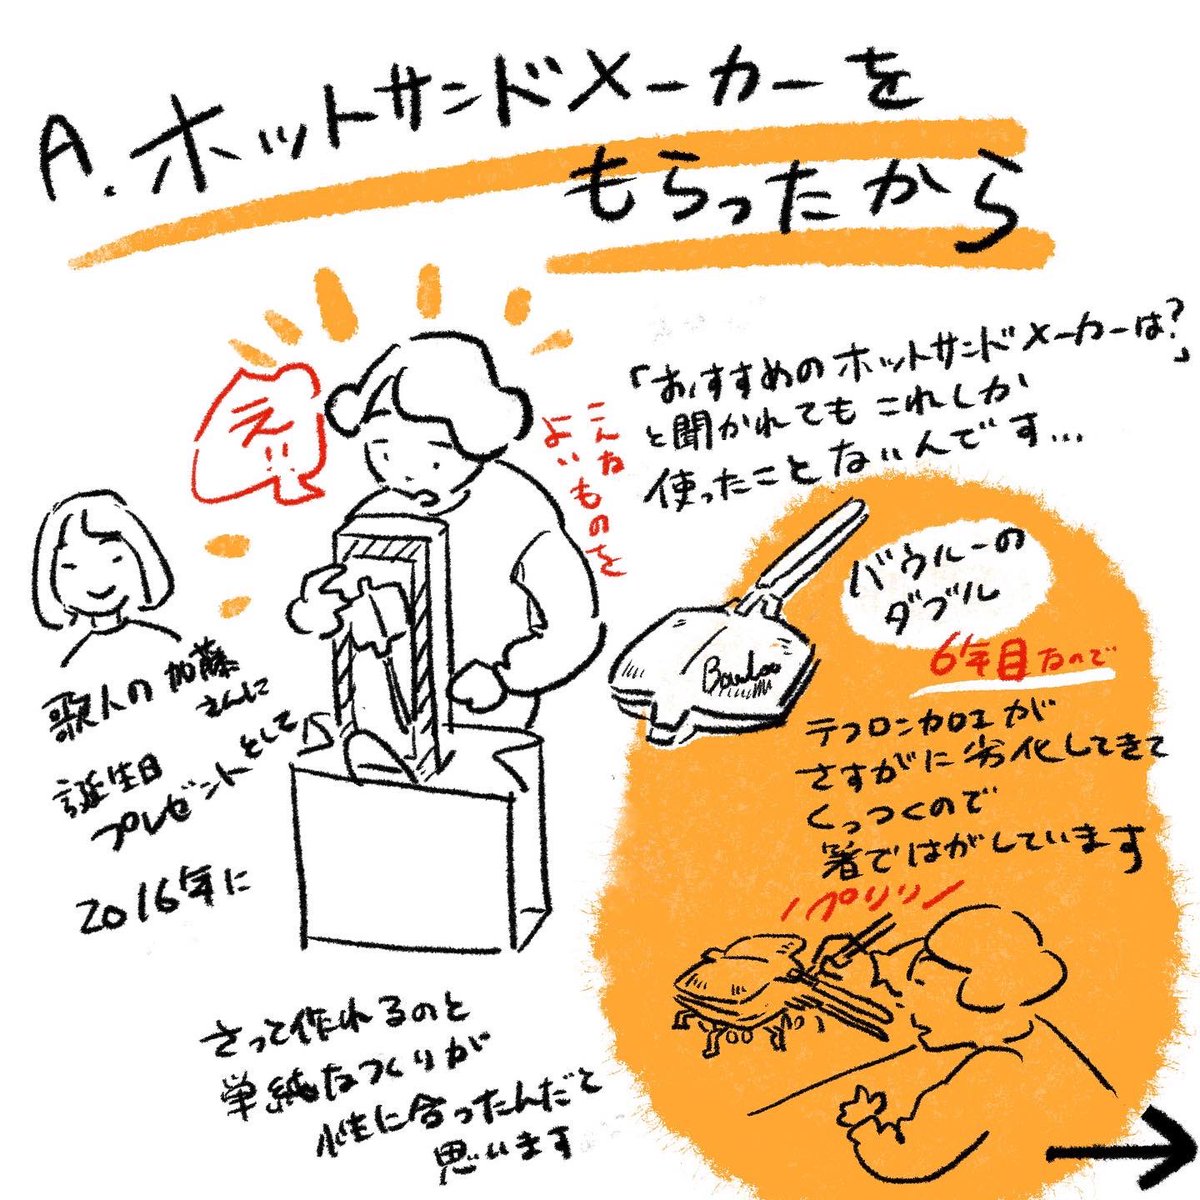 A.ホットサンドメーカーを
もらったから
「おすすめのホットサンドメーカーは?」
と聞かれても これしか
使ったことないんです…
え!!
こんな
よいものを
歌人の加藤
さんに
誕生日
プレゼントとして
2016年に
バウルーの
ダブル
Bawloo
6年目なので
テフロン加工が
さすがに劣化してきて
くっつくので
箸ではがしています
プリリン
さっと作れるのと
単純なつくりが
性に合ったんだと
思います